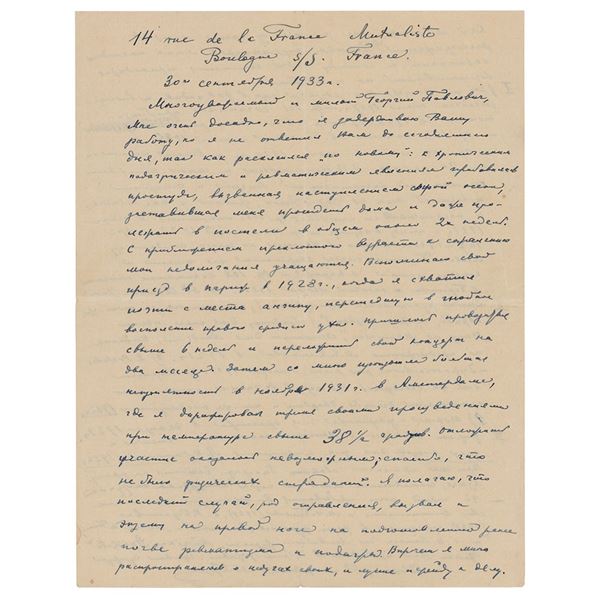 14 rue de la France Mutualiste
Boulogne s/S. France.
30го сентября 1933 г.
Многоуважаемый и милый Георгий Павлович,
Мне очень досадно, что я задерживаю Вашу
работу, но я не ответил Вам до сегодняшнего
дня, так как расклеился "по новому": к хроническим
подагрическим и ревматическим явлениям прибавилась
простуда, вызванная наступлением сырой осени,
заставившая меня просидеть дома и даже про-
лежать в постели в общем около 2х недель.
С приближением преклонного возраста к сожалению
мои недомогания учащаются. Вспоминаю свой
приезд в Париж в 1928 г., когда я схватил
почти с места ангину, перешедшую в гнойное
воспаление правого среднего уха. Пришлось проваляться
свыше 6 недель и переложить свой концерт на
два месяца. Затем со мною произошла большая
неприятность в ноябре 1931 г. в Амстердаме,
где я дирижировал тремя своими произведениями
при температуре свыше 38 1/2 градусов. Отложить
участие оказалось невозможным; спасибо, что
не было физических страданий. Я полагаю, что
последний случай, род отравления, вызвал и
экзему на правой ноге на подготовленной ранее
почве ревматизма и подагры. Впрочем я много
распространяюсь о недугах своих, и лучше перейду к делу.